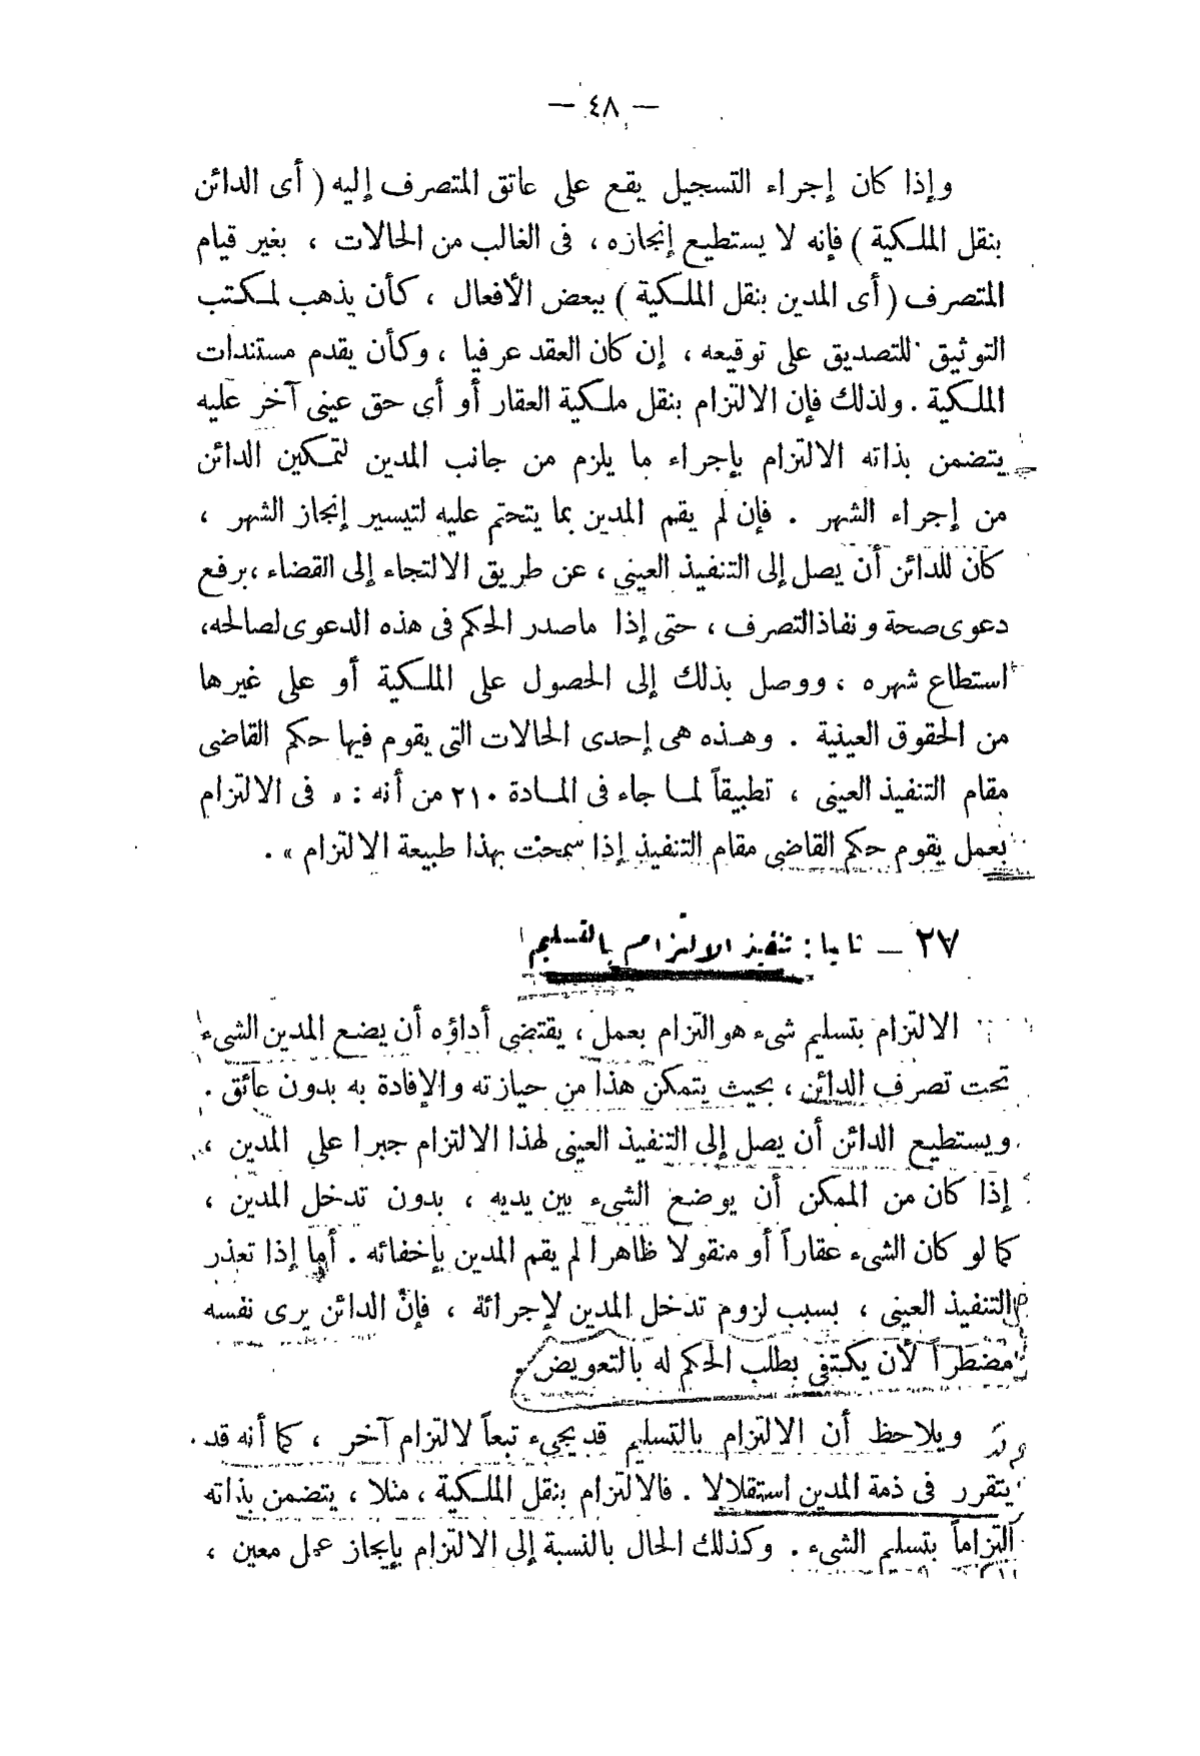 — ٤٨ —
وإذا كان إجراء التسجيل يقع على عاتق المتصرف إليه ( أى الدائن
بنقل الملكية ) فإنه لا يستطيع إنجازه ، فى الغالب من الحالات ، بغير قيام
المتصرف ( أى المدين بنقل الملكية ) ببعض الأفعال ، كأن يذهب لمكتب
التوثيق للتصديق على توقيعه ، إن كان العقد عرفيا ، وكأن يقدم مستندات
الملكية . ولذلك فإن الالتزام بنقل ملكية العقار أو أى حق عينى آخر عليه
يتضمن بذاته الالتزام بإجراء ما يلزم من جانب المدين لتمكين الدائن
من إجراء الشهر . فإن لم يقم المدين بما يتحتم عليه لتيسير إنجاز الشهر ،
كان للدائن أن يصل إلى التنفيذ العينى ، عن طريق الالتجاء إلى القضاء ، برفع
دعوى صحة ونفاذ التصرف ، حتى إذا ماصدر الحكم فى هذه الدعوى لصالحه ،
استطاع شهره ، ووصل بذلك إلى الحصول على الملكية أو على غيرها
من الحقوق العينية . وهذه هى إحدى الحالات التى يقوم فيها حكم القاضى
مقام التنفيذ العينى ، تطبيقاً لما جاء فى المادة ٢١٠ من أنه : « فى الالتزام
بعمل يقوم حكم القاضى مقام التنفيذ إذا سمحت بهذا طبيعة الالتزام » .
٢٧ — ثانيا : تنفيذ الالتزام بالتسليم
الالتزام بتسليم شىء هو التزام بعمل ، يقتضى أداؤه أن يضع المدين الشىء
تحت تصرف الدائن ، بحيث يتمكن هذا من حيازته والإفادة به بدون عائق .
ويستطيع الدائن أن يصل إلى التنفيذ العينى لهذا الالتزام جبرا على المدين ،
إذا كان من الممكن أن يوضع الشىء بين يديه ، بدون تدخل المدين ،
كما لو كان الشىء عقاراً أو منقولا ظاهرا لم يقم المدين بإخفائه . أما إذا تعذر
التنفيذ العينى ، بسبب لزوم تدخل المدين لإجرائة ، فإن الدائن يرى نفسه
مضطراً لأن يكتفى بطلب الحكم له بالتعويض .
ويلاحظ أن الالتزام بالتسليم قد يجىء تبعاً لالتزام آخر ، كما أنه قد
يتقرر فى ذمة المدين استقلالا . فالالتزام بنقل الملكية ، مثلا ، يتضمن بذاته
التزاماً بتسليم الشىء . وكذلك الحال بالنسبة إلى الالتزام بإنجاز عمل معين ،